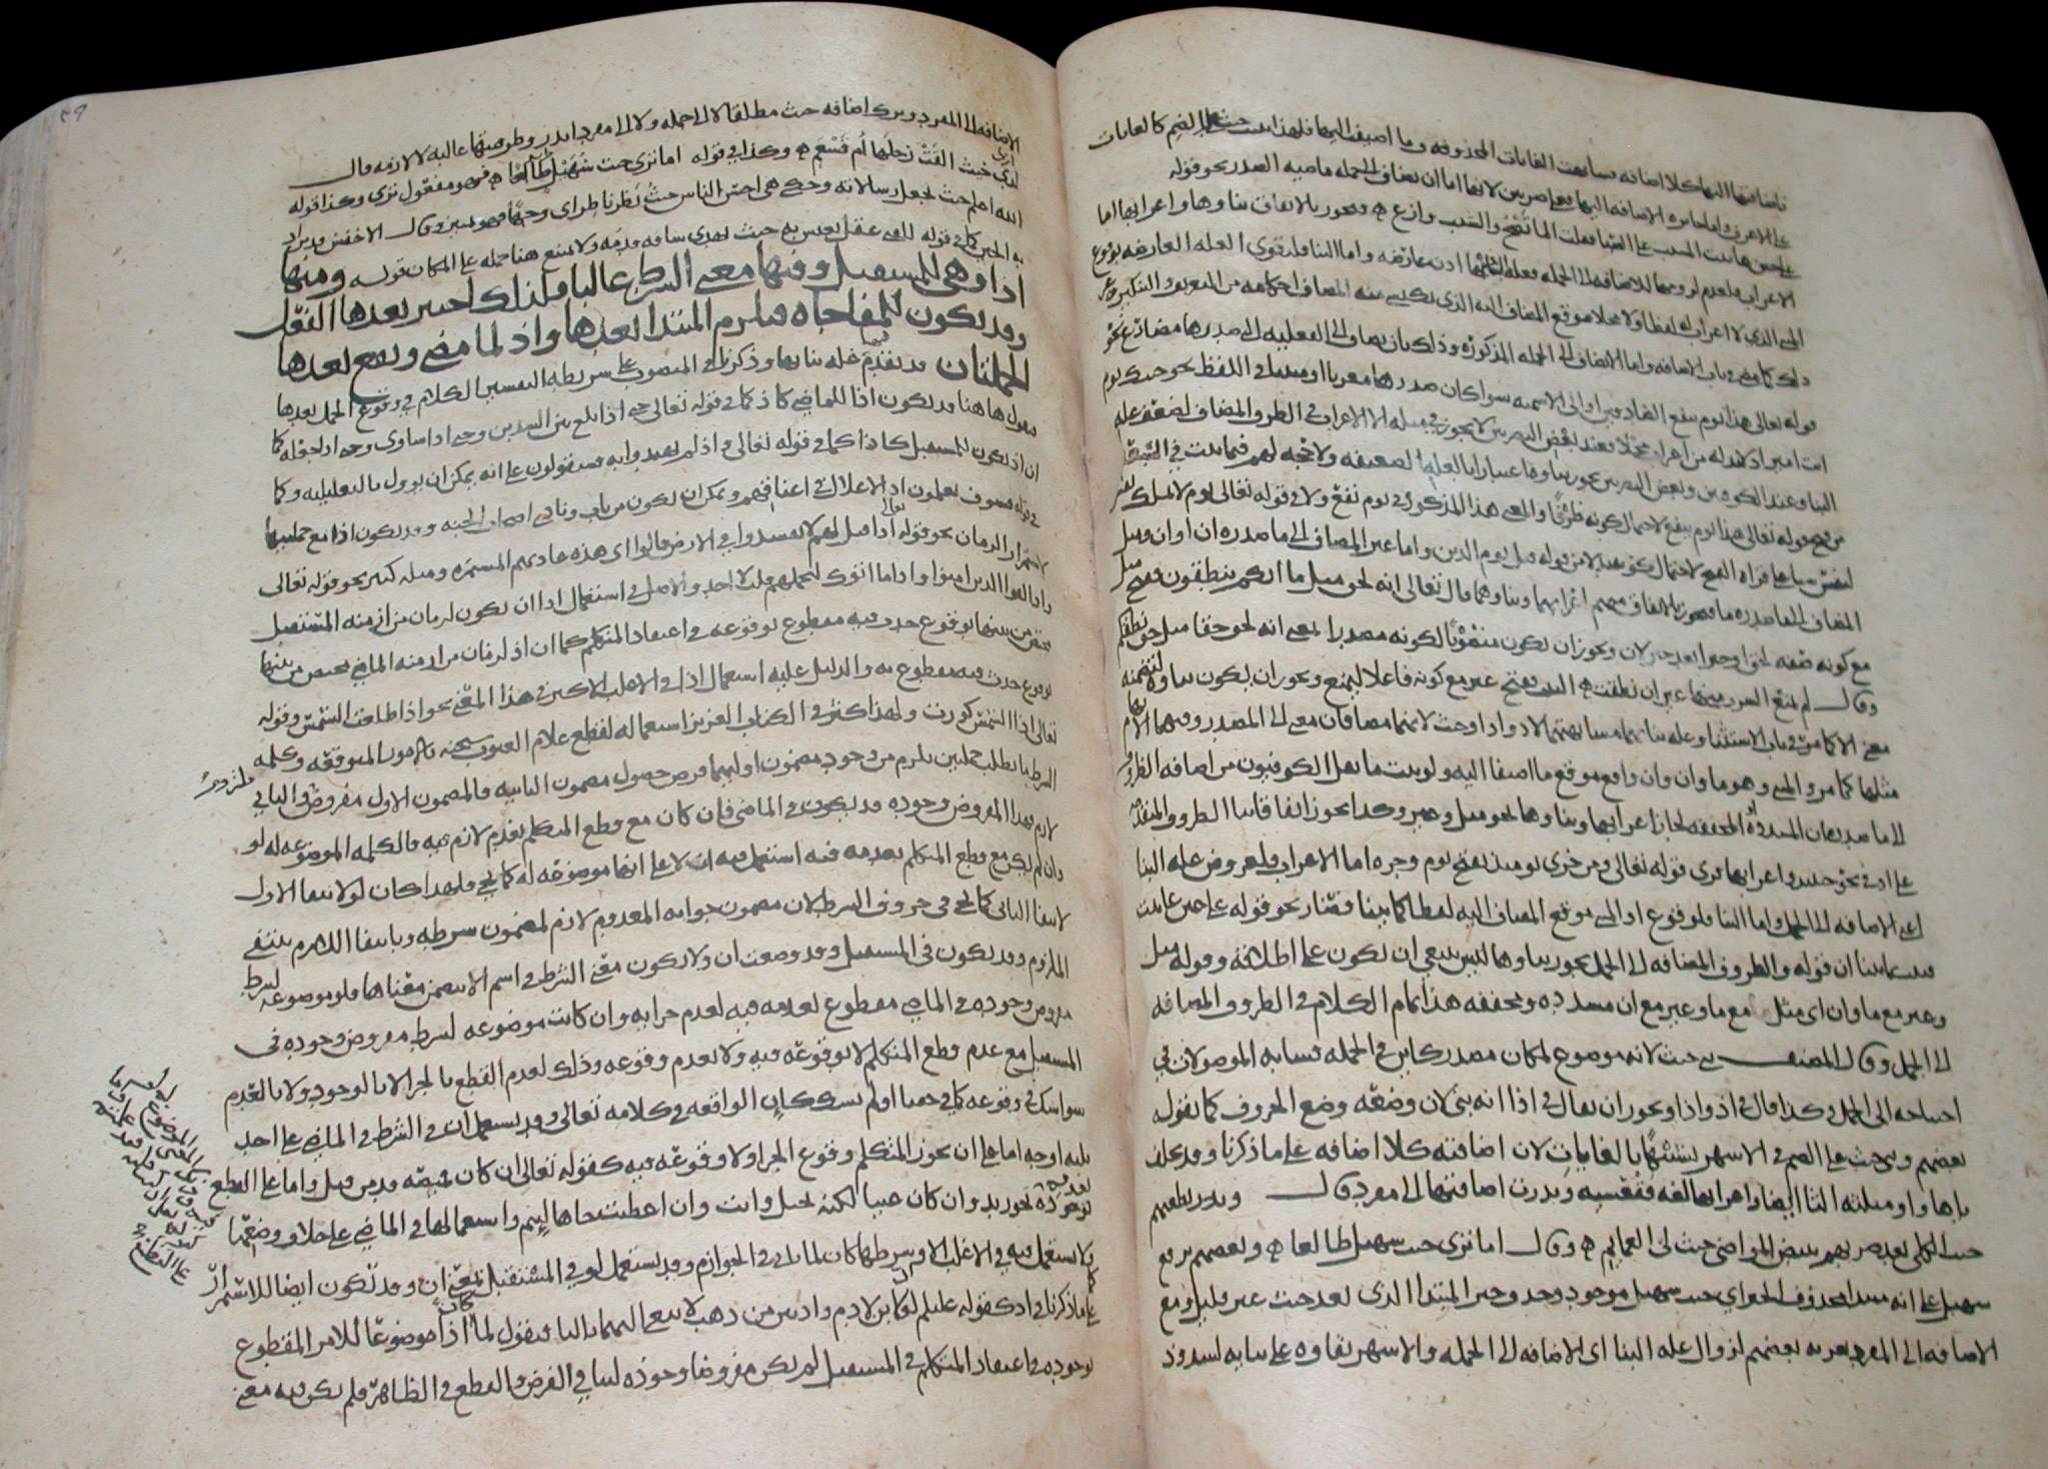 فاضافتها اليها كلا اضافه فشابهت الغايات المحذوفه وما اضيفت اليها فلهذا بنيت حيث على الضم كالغايات
على الاعرف واما جايزه الاضافه اليها فعلى ضربين لانها اما ان تضاف الى جمله ماضيه الصدر نحو قوله
على حين عاتبت المشيب على الصبا فقلت الما تصح والشيب وازع فيجوز بالاتفاق بناوها واعرابها اما
الاعراب فلعدم لزومها للاضافه الى الجمله فعله البناء اذن عارضه واما البنا فلتقوى العله العارضه بوقوع
المبني الذي لا اعراب له لفظا ولا محلا موقع المضاف اليه الذي يكتسي منه المضاف احكامه من التعريف والتنكير وغير
ذلك كما مضى في باب الاضافه واما ان تضاف الى الجمله المذكوره وذلك بان تضاف الى الفعليه التي صدرها مضارع نحو
قوله تعالى هذا يوم ينفع الصادقين او الى الاسميه سوا كان صدرها معربا او مبنيا في اللفظ نحو جيتك يوم
انت امير اذ لا بد له من اعراب محلا فعند بعض البصريين لا يجوز في مثله الا الاعراب في الظرف المضاف لضعف عله
البنا وعند الكوفيين وبعض البصريين يجوز بناوه اعتبارا بالعله الضعيفه ولا حجه لهم فيما ثبت في السبعه
من فتح قوله تعالى هذا يوم ينفع لاحتمال كونه ظرفا والمعنى هذا المذكور في يوم ينفع ولا في قوله تعالى يوم لا تملك نفس
لنفس شيا على قراه الفتح لاحتمال كونه بدلا من قوله قبل يوم الدين واما غير المضاف الى ما صدره ان او ان ومثل
المضاف الى ما صدره ما فيجوز بالاتفاق منهم اعرابهما وبناوهما قال تعالى انه لحق مثل ما انكم تنطقون بفتح مثل
مع كونه صفه لحق او خبرا بعد خبر لان ويجوز ان يكون منصوبا لكونه مصدرا بمعنى انه لحق حقا مثل حق نطقكم
وقال لم يمنع الشرب منها غير ان نطقت البيت بفتح غير مع كونه فاعلا ليمنع ويجوز ان يكون بناوه لتضمنه
معنى الا كما مر في باب الاستثنا وعله بنائهما مشابهتهما لاذ واذا وحيث لانهما مضافان معنى الى المصدر وفيهما الابهام
مثلها كما مر والمبني وهو ما وان وان واقع موقع ما اضيفا اليه ولو ثبت ما نقل الكوفيون من اضافه الظروف
الى ما صدر بان المشدده او المخففه لجاز اعرابها وبناوها نحو مثل وغير وكذا يجوز اتفاقا بنا الظروف المتقدمه
على اذ في نحو حينئذ واعرابها قرى قوله تعالى ومن خزي يومئذ بفتح يوم وجره اما الاعراب فلعروض عله البنا
اعني الاضافه الى الجمل واما البنا فلوقوع اذ المبني موقع المضاف اليه لفظا كما بينا فصار نحو قوله على حين عاتبت
فثبت بما بينا ان قوله والظروف المضافه الى الجمل يجوز بناوها ليس ينبغي ان يكون على اطلاقه وقوله مثل
وغير مع ما وان اي مثل مع ما وغير مع ان مشدده ومخففه هذا تمام الكلام في الظروف المضافه
الى الجمل وقال المصنف بني حيث لانه موضوع لمكان مصدر كاين في الجمله فشابه الموصولات في
احتياجه الى الجمل وكذا قال في اذ واذا ويجوز ان يقال في اذا انه بني لان وضعه وضع الحروف كما يقوله
بعضهم وبني حيث على الضم في الاشهر تشبيها بالغايات لان اضافته كلا اضافه على ما ذكرنا وقد يخلف
ياها واو ومثلثه الثا ايضا واعرابها لغه فقعسيه وندرت اضافتها الى مفرد قال ونطعنهم
حيث الكلى بعد ضربهم ببيض المواضي حيث لي العمايم وقال اما ترى حيث سهيل طالعا وبعضهم يرفع
سهيل على انه مبتدا محذوف الخبر اي حيث سهيل موجود وحذف خبر المبتدا الذي بعد حيث غير قليل ومع
الاضافه الى المفرد يعربه بعضهم لزوال عله البنا اي الاضافه الى الجمله والاشهر بقاوه على بنايه لشذوذ
الاضافه الى المفرد وترك اضافه حيث مطلقا لا الى جمله ولا الى مفرد اندر وظرفيتها غالبه لا لازمه قال
لدى حيث القت رحلها ام قشعم وكذا في قوله اما ترى حيث سهيل طالعا فهو مفعول ترى وكذا قوله
الله اعلم حيث يجعل رسالاته وحكي هي احسن الناس حيث نظر ناظر اي وجها فهو تمييز وقال الاخفش قد يراد
به الحين كما في قوله للفتى عقل يعيش به حيث تهدي ساقه قدمه ولا يمتنع هنا حمله على المكان قوله ومنها
اذا وهي للمستقبل وفيها معنى الشرط غالبا ولذلك اختير بعدها الفعل
وقد تكون للمفاجاه فيلزم المبتدا بعدها واذ لما مضى ويقع بعدها
الجملتان قد تقدم عله بنائها وذكرنا في المنصوب على شريطه التفسير الكلام في وقوع الجمل بعدها
فنقول هاهنا قد يكون اذا للماضي كاذ كما في قوله تعالى حتى اذا بلغ بين السدين وحتى اذا ساوى وحتى اذا جعله كما
ان اذ تكون للمستقبل كاذا كما في قوله تعالى واذ لم يهتدوا به فسيقولون على انه يمكن ان يوول بالتعليليه وكما
في قوله فسوف يعلمون اذ الاغلال في اعناقهم ويمكن ان يكون من باب ونادى اصحاب الجنه وقد يكون اذا مع جملتيها
لاستمرار الزمان نحو قوله تعالى اذا قيل لهم لا تفسدوا في الارض قالوا اي هذه عادتهم المستمره ومثله كثير نحو قوله تعالى
واذا لقوا الذين امنوا واذا ما اتوك لتحملهم قلت لا اجد والاصل في استعمال اذا ان تكون لزمان من ازمنه المستقبل
مختص من بينها بوقوع حدث فيه مقطوع بوقوعه في اعتقاد المتكلم كما ان اذ لزمان من ازمنه الماضي مختص من بينها
بوقوع حدث فيه مقطوع به والدليل عليه استعمال اذا في الاغلب الاكثر في هذا المعنى نحو اذا طلعت الشمس وقوله
تعالى اذا الشمس كورت ولهذا كثر في الكتاب العزيز استعماله لقطع علام الغيوب سبحنه بالامور المتوقعه وكلمه
الشرط ما يطلب جملتين يلزم من وجود مضمون اوليهما فرضا حصول مضمون الثانيه فالمضمون الاول مفروض ملزوم والثاني
لازم فهذا المفروض وجوده قد يكون في الماضي فان كان مع قطع المتكلم بعدم لازمه فيه فالكلمه الموضوعه له لو
وان لم يكن مع قطع المتكلم بعدمه فيه استعمل فيه ان لا على انها موضوعه له كما يجي فلهذا كان لو لانتفا الاول
لانتفا الثاني كما يجي في حروف الشرط لان مضمون جوابه المعدوم لازم لمضمون شرطه وبانتفا اللازم ينتفي
الملزوم وقد يكون في المستقبل وقد وضعت ان ولا يكون معنى الشرط في اسم الا بتضمن معناها فلو موضوعه لشرط
مفروض وجوده في الماضي مقطوع بعدمه فيه لعدم جزايه وان كانت موضوعه لشرط مفروض وجوده في
المستقبل مع عدم قطع المتكلم لا بوقوعه فيه ولا بعدم وقوعه وذلك لعدم القطع بالجزا لا بالوجود ولا بالعدم
سوا شك في وقوعه كما في حقنا او لم يشك كان الواقعه في كلامه تعالى وقد يستعمل ان في الشرط في الماضي على احد
ثلثه اوجه اما على ان يجوز المتكلم وقوع الجزا ولا وقوعه فيه كقوله تعالى ان كان قميصه قد من قبل واما على القطع
بعدمه فيه
بوجوده نحو زيد وان كان غنيا لكنه بخيل وانت وان اعطيت جاها لييم واستعمالها في الماضي على خلاف وضعها
ولا تستعمل فيه في الاغلب الا وشرطها كان لما ياتي في الجوازم وقد يستعمل لو في المستقبل بمعنى ان وقد تكون ايضا للاستمرار
على ما ذكرنا في اذ كقوله عليلم لو كان لابن ادم واديين من ذهب لابتغى اليهما ثالثا فنقول لما كان اذا موضوعا للامر المقطوع
بوجوده في اعتقاد المتكلم في المستقبل لم يكن مفروضا وجوده لتنافي الفرض والقطع في الظاهر فلم يكن فيه معنى